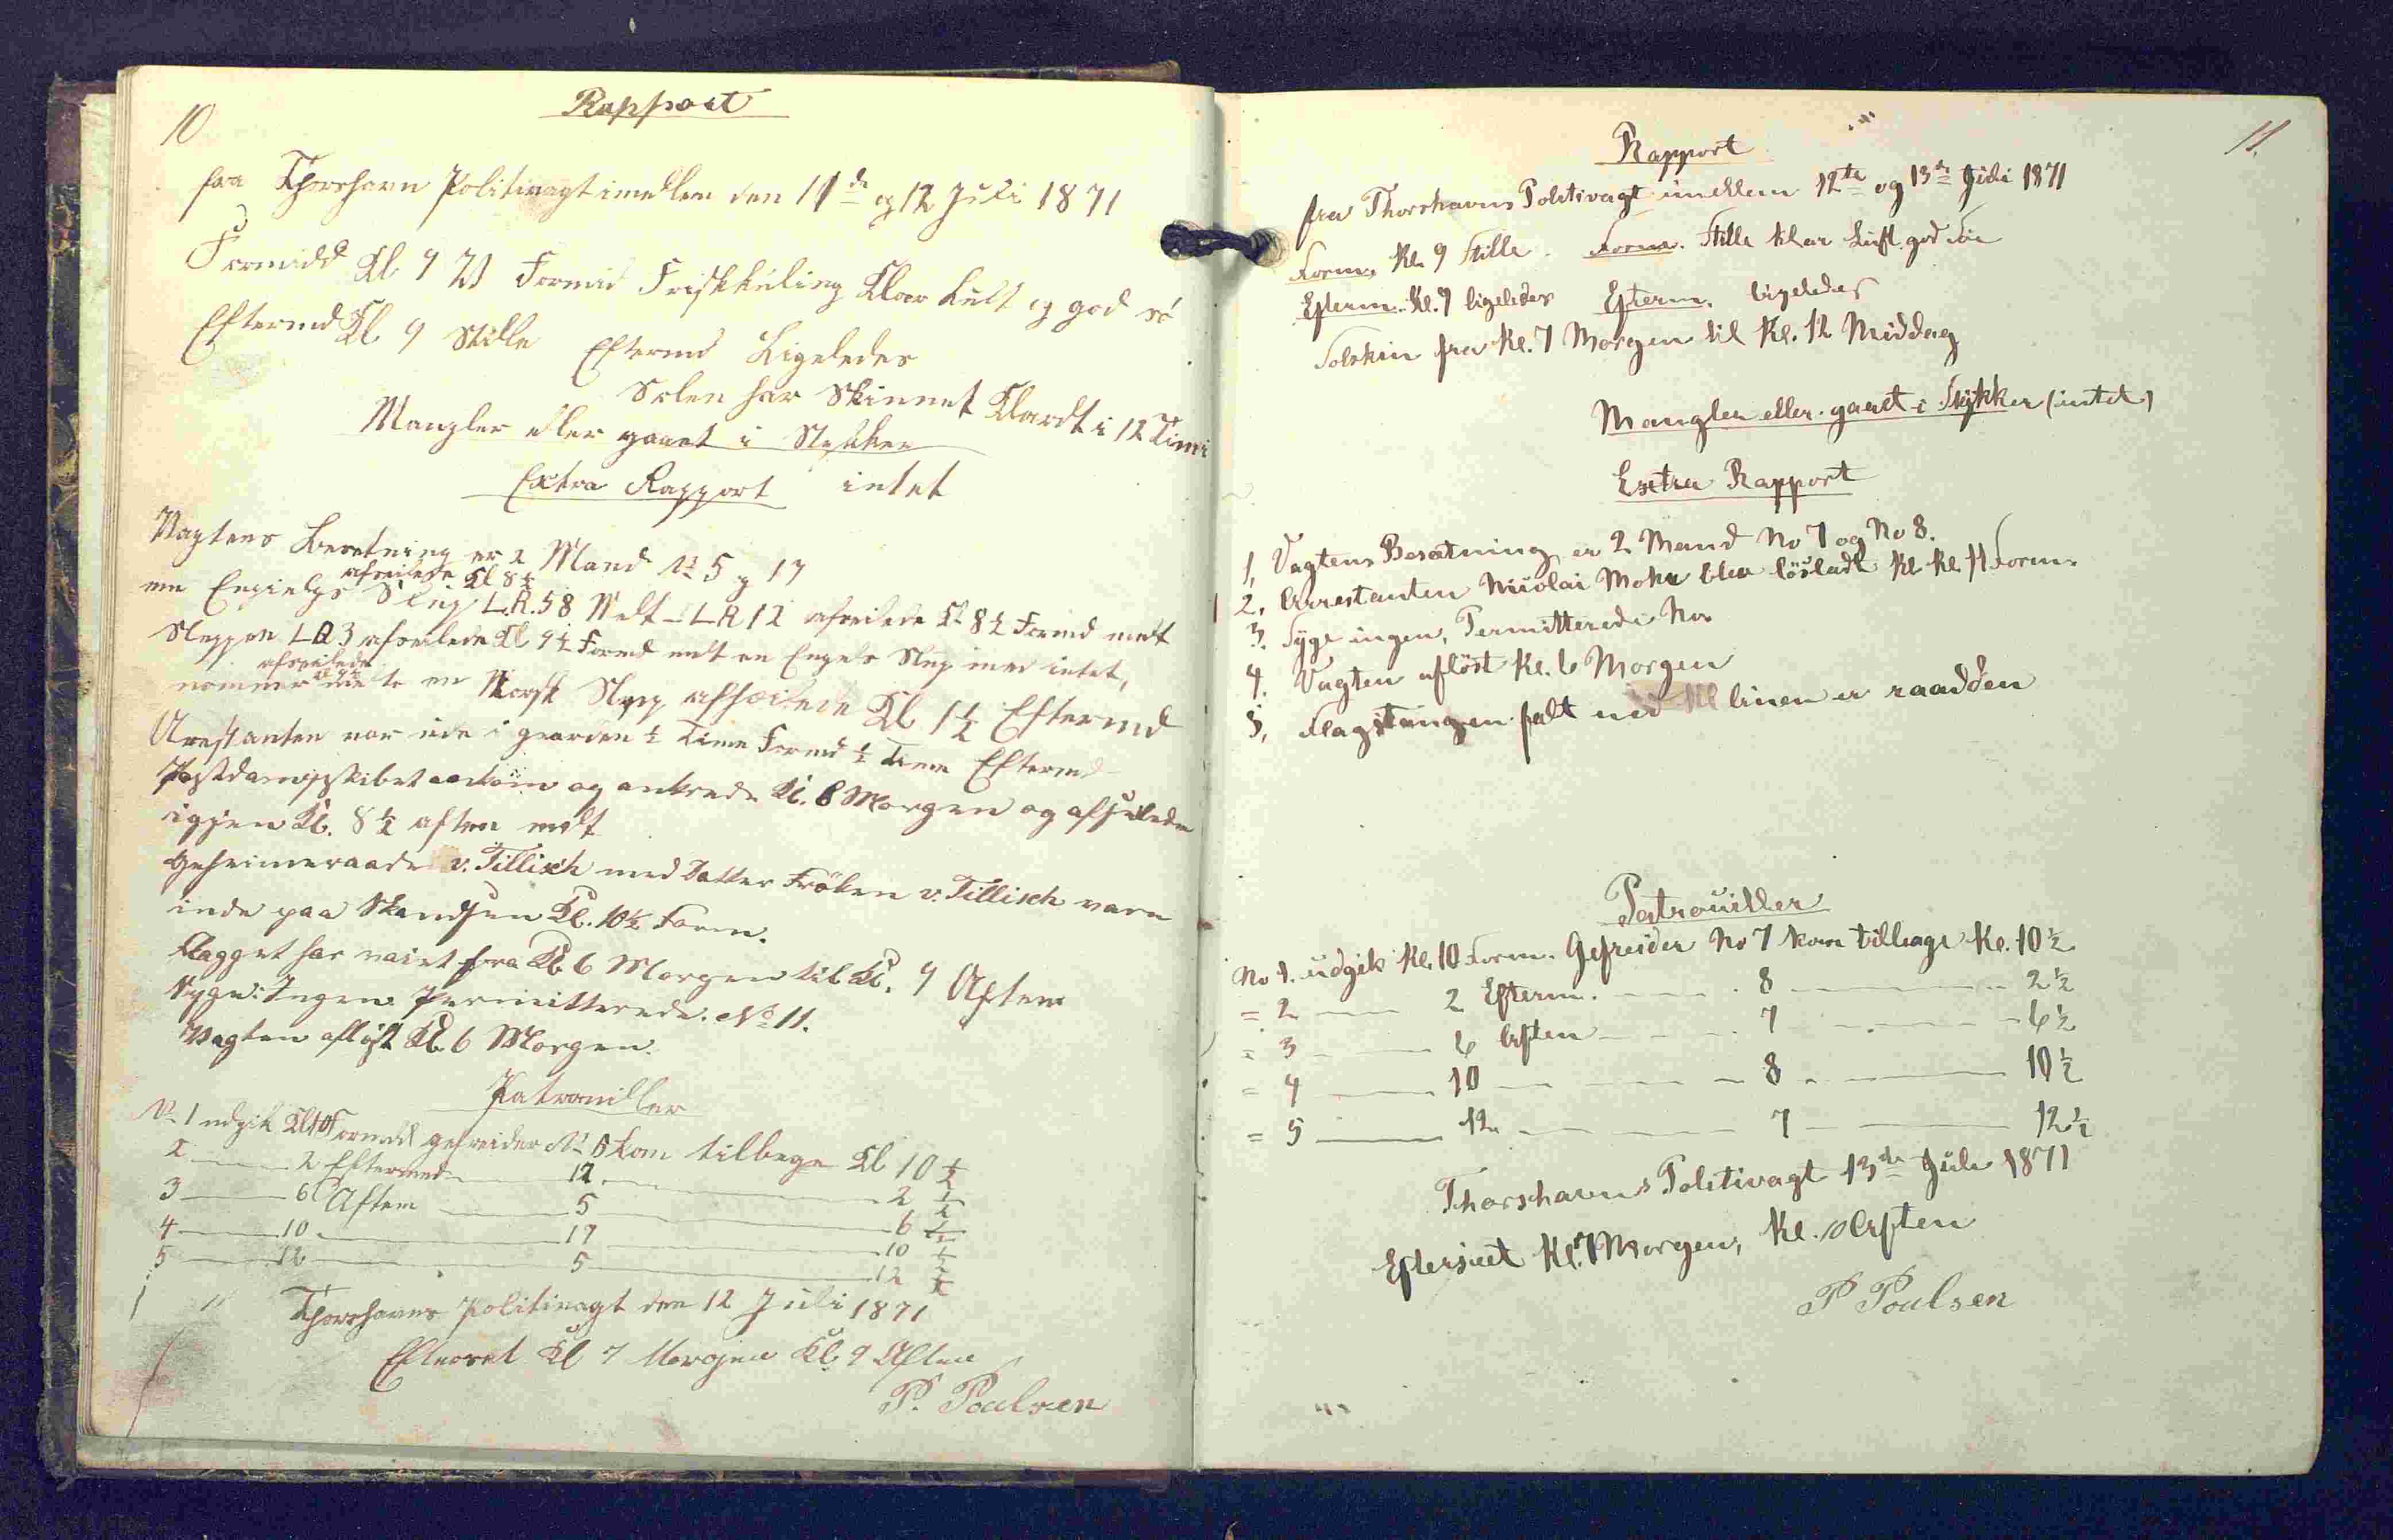 10
Rapport
fra Thorshavn Politivagt imellem den 11de og 12 Juli 1871
Formidd Kl 9 W Formid Friskkuling Klar Luft og god sö
Eftermd Kl 9 Stille Eftermd Ligeledes
Solen har Skinnet Klardt i 12 Timer
Mangler eller gaaet i Stykker
Extra Rapport intet
Vagtens Besetning er 2 Mand No 5 og 17
afseilede Kl 8½
en Engelsk Slup L.R. 58 Nelt - LR 12 afseilede Kl 8½ Formd
Sluppen LR 3 afseilede Kl 9½ Formd en Engels Slup med intet,
afseilede
nommer en Norsk Slup afseilede Kl 1½ Eftermd
Arestanten var ude i gaarden ½ Time Formd ½ Time Eftermd
Postdampskibet ankom og ankrede Kl. 6 Morgen og afseilede
igjen Kl. 8½ aften
Geheimeraade v. Tillisch med Datter Fröken v. Tillisch vare
inde paa Skandsen Kl. 10½ Form.
Flagget har vaiet fra Kl. 6 Morgen til Kl. 9 Aften
Syge: Ingen. Permitterede: No 11.
Vagten aflöst Kl. 6 Morgen.
Patrouiller
No 1 udgik Kl 10 Formdd gefreider No 5 kom tilbage Kl 10½
2 2 Eftermd 17 2½
3 6 Aften 5 6½
4 10 17 10½
5 12 5 12½
Thorshavns Politivagt den 12 Juli 1871
Efterset Kl 7 Morgen Kl. 9 Aften
P. Poulsen
11.
Rapport
fra Thorshavns Politivagt imellem 12te og 13de Juli 1871
Form. Kl. 9 Stille. Form. Stille klar Luft. god Söe
Efterm. Kl. 9 ligeledes Efterm. ligeledes
Solskin fra Kl. 7 Morgen til Kl. 12 Middag
Mangler eller gaaet i Stykker (intet)
Extra Rapport
1, Vagtens Besætning er 2 Mand No 7 og No 8.
2, Arrestanten Nicolai Mohr blev lösladt Kl Kl. 11 Form.
3. Syge ingen, Permitterede No
4. Vagten aflöst Kl. 6 Morgen
5, Flagstangen falt ned linen er raadden
Patrouiller
No 1. udgik Kl. 10 Form. Gefreider No 7 kom tilbage Kl. 10½
= 2 2 Efterm. 8 2½
= 3 6 Aften 7 6½
= 4 10 8 10½
= 5 12 7 12½
Thorshavns Politivagt 13de Juli 1871
Efterseet Kl. 7 Morgen, Kl. 10 Aften
P Poulsen